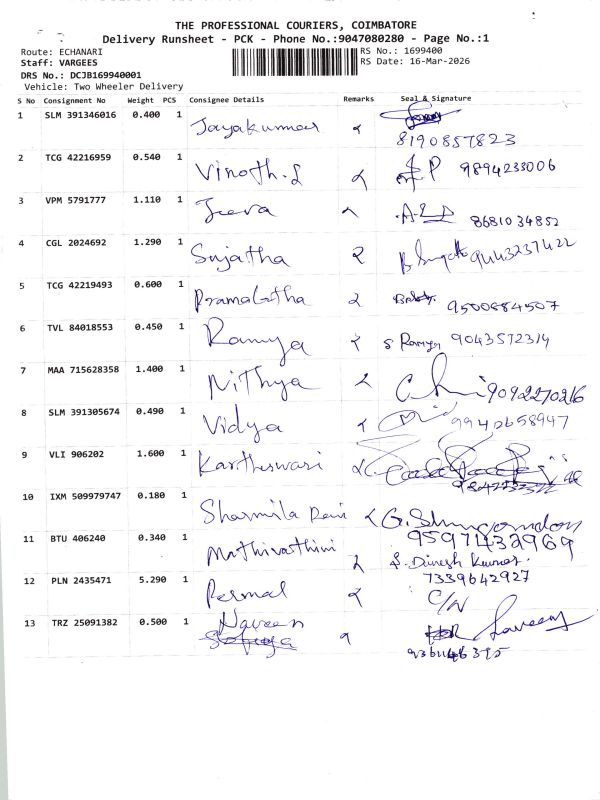 THE PROFESSIONAL COURIERS, COIMBATORE
Delivery Runsheet - PCK - Phone No.:9047080280 - Page No.:1
Route: ECHANARI RS No.: 1699400
Staff: VARGEES RS Date: 16-Mar-2026
DRS No.: DCJB169940001
Vehicle: Two Wheeler Delivery
S No Consignment No Weight PCS Consignee Details Remarks Seal & Signature
1 SLM 391346016 0.400 1 Jayakumar
8190857823
2 TCG 42216959 0.540 1 Vinoth.S 9894233006
3 VPM 5791777 1.110 1 Jeeva 8681034852
4 CGL 2024692 1.290 1 Sujatha 9443237422
5 TCG 42219493 0.600 1 Pramalatha 9500884507
6 TVL 84018553 0.450 1 Ramya S Ramya 9043572314
7 MAA 715628358 1.400 1 Nithya 9092270216
8 SLM 391305674 0.490 1 Vidya 9942658947
9 VLI 906202 1.600 1 Kartheswari
10 IXM 509979747 0.180 1 Sharmila Devi
9597432969
11 BTU 406240 0.340 1 Mathivathini S. Dinesh Kumar.
7339642927
12 PLN 2435471 5.290 1 Permal C/N
13 TRZ 25091382 0.500 1 Naveen